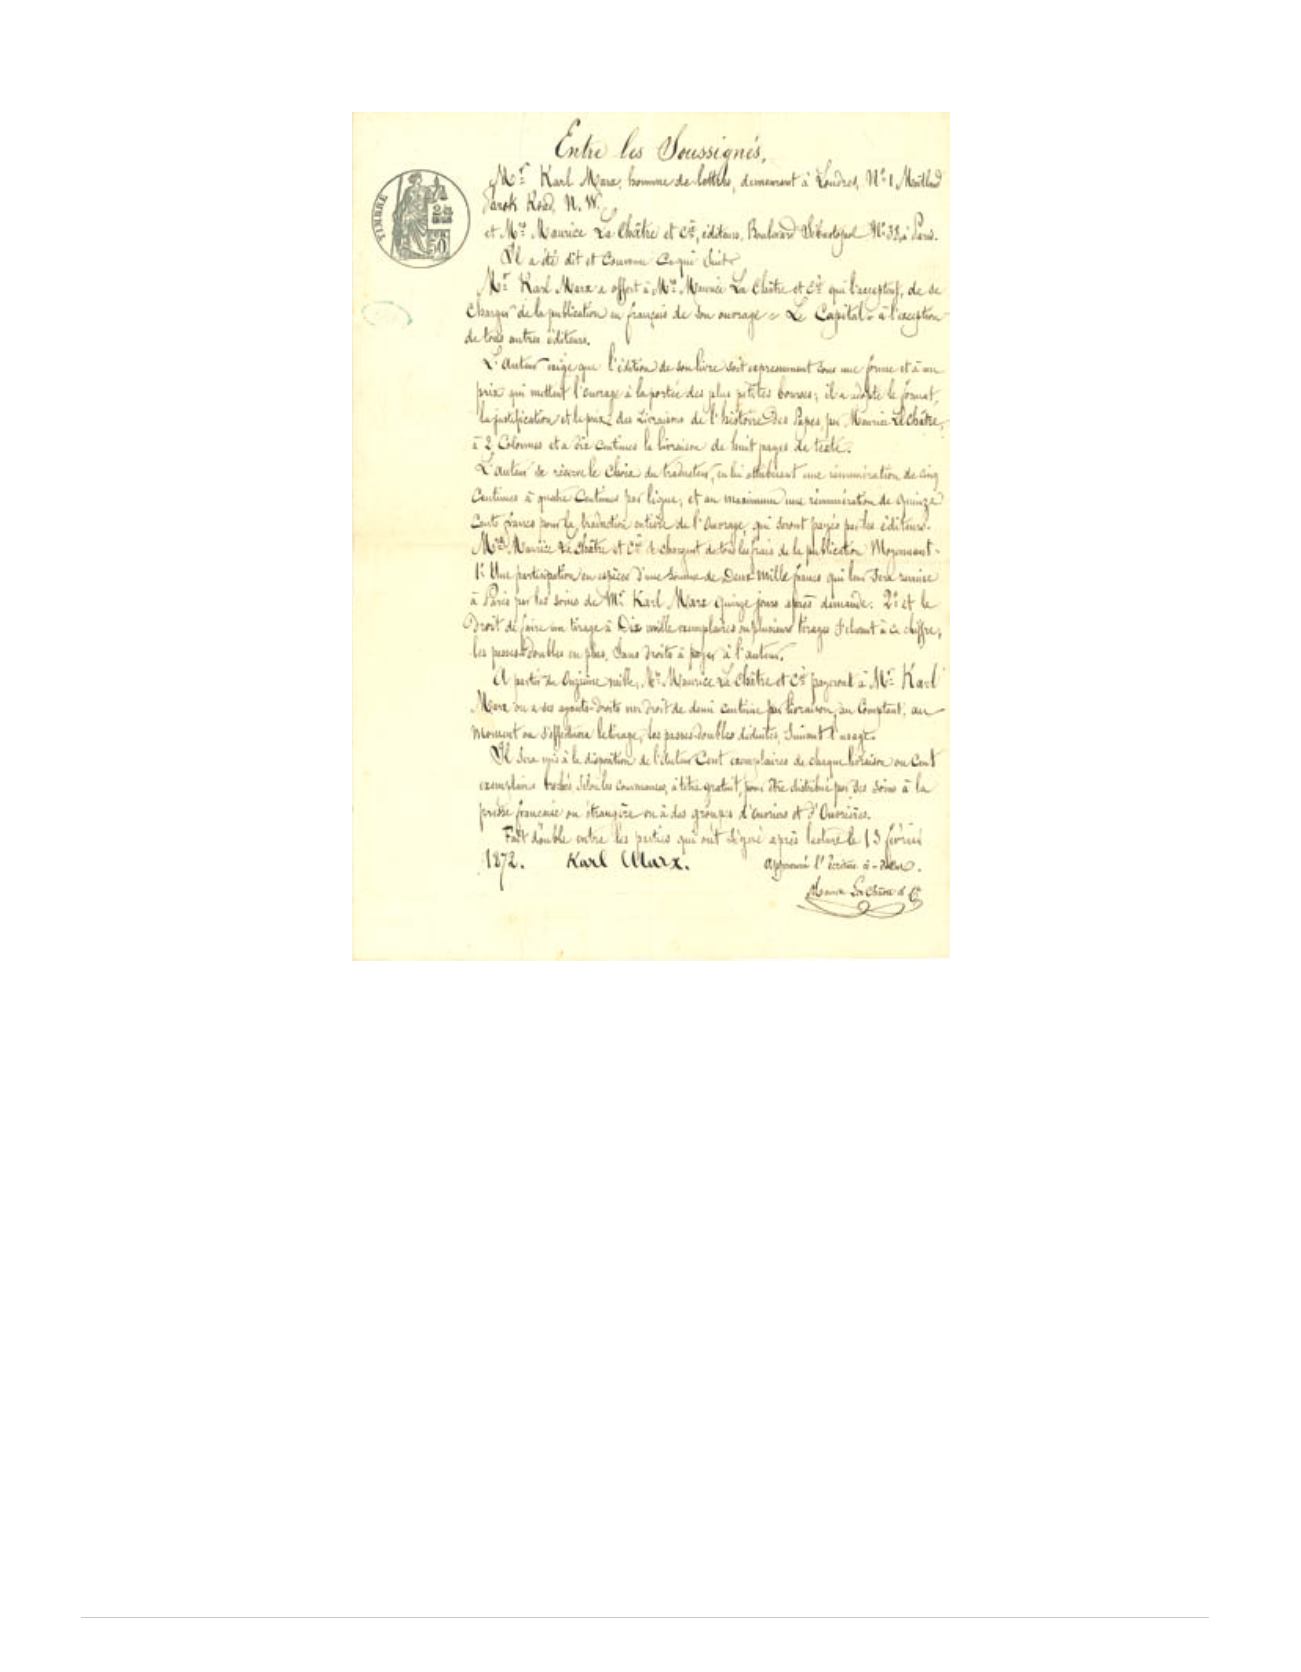 Entre les Soussignés,
TIMBRE
50
Mr. Karl Marx, homme de lettres, demeurant à Londres, No. 1, Maitland
Park Road, N. W.
et Mrs. Maurice La Châtre et Cie, éditeurs, Boulevard Sébastopol No. 38, à Paris.
Il a été dit et Convenu Ce qui Suit
Mr. Karl Marx a offert à Mrs. Maurice La Châtre et Cie qui l'acceptent, de se
Charger de la publication en français de son ouvrage « Le Capital » à l'exception
de tous autres éditeurs.
L'auteur exige que l'édition de son livre soit expressement sous une forme et à un
prix qui mettent l'ouvrage à la portée des plus petites bourses; il a adopté le format,
la justification et le prix des Livraisons de l'histoire des Papes, par Maurice La Châtre,
à 2 Colonnes et à Dix Centimes la livraison de huit pages de texte.
L'auteur se réserve le Choix du traducteur, en lui attribuant une rémunération de cinq
Centimes à quatre Centimes par ligne, et au maximum une rémunération de quinze
Cents francs pour la traduction entière de l'ouvrage, qui seront payés par les éditeurs.
Mrs. Maurice La Châtre et Cie se chargent de tous les frais de la publication Moyennant:
1o. Une participation en espèces d'une Somme de Deux Mille francs qui leur Sera remise
à Paris par les soins de Mr. Karl Marx quinze jours après demande. 2o. et le
Droit de faire un tirage à Dix mille exemplaires ou plusieurs tirages s'élevant à ce chiffre,
les passes doubles en plus, Sans droits à payer à l'auteur.
A partir du Onzième mille, Mrs. Maurice La Châtre et Cie payeront à Mr. Karl
Marx ou à ses ayants-droits un droit de demi centime par livraison, au Comptant, au
Moment où s'effectuera le tirage, les passes-doubles déduites, Suivant l'usage.
Il Sera mis à la disposition de l'Auteur Cent exemplaires de chaque livraison ou Cent
exemplaires brochés Selon les Convenances, à titre gratuit, pour être distribué par Ses Soins à la
presse française ou étrangère ou à des groupes d'ouvriers et d'Ouvrières.
Fait double entre les parties qui ont Signé après lecture le 13 février
1872. Karl Marx. approuvé l'écriture ci-dessus.
Maurice La Châtre & Cie